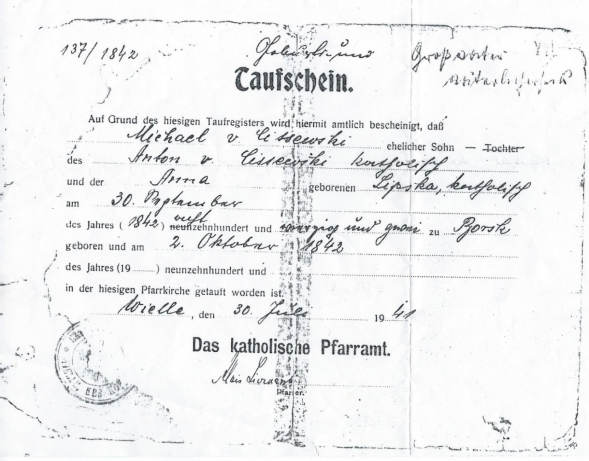 137/1842
Geburts- und
Großvater
Taufschein.
Auf Grund des hiesigen Taufregisters wird hiermit amtlich bescheinigt, daß
Michael v Cissewski ehelicher Sohn — Tochter
des Anton v. Cissewski katholisch
und der Anna geborenen Lipska, katholisch
am 30. September
des Jahres (1842) acht neunzehnhundert und vierzig und zwei zu Borsk
geboren und am 2. Oktober 1842
des Jahres (19 ) neunzehnhundert und
in der hiesigen Pfarrkirche getauft worden ist.
Wielle, den 30. Juli 1941
Das katholische Pfarramt.
Pfarrer.